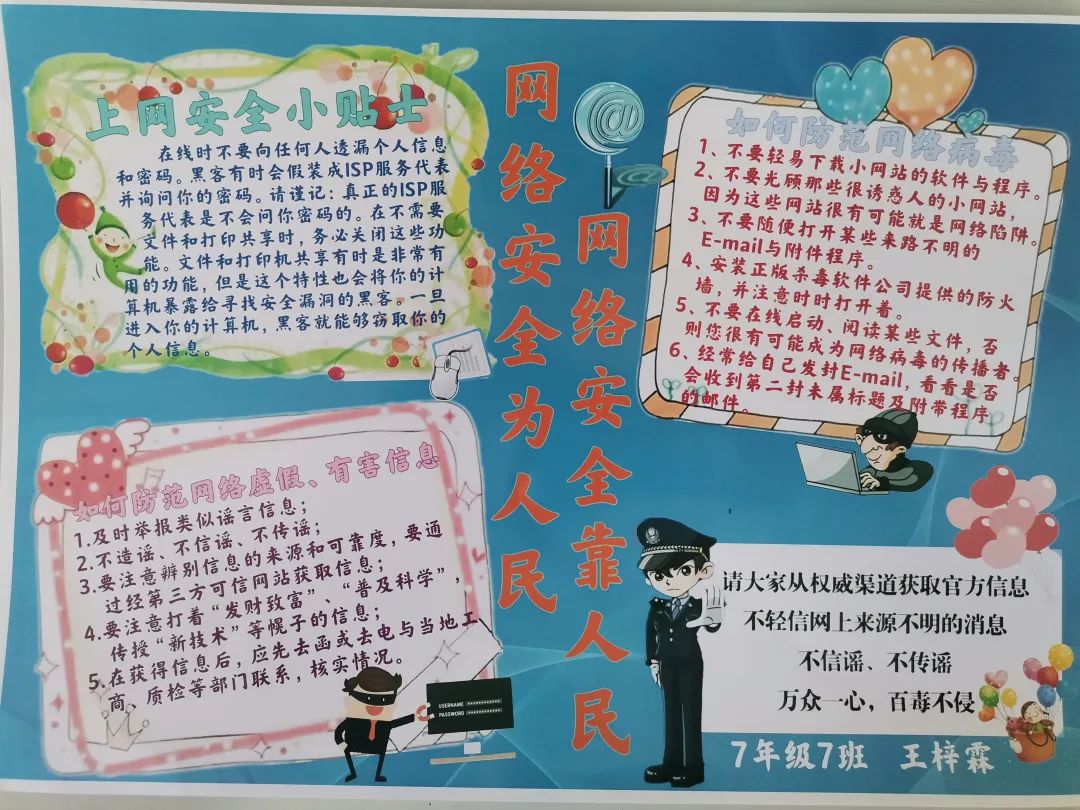 上网安全小贴士
在线时不要向任何人透漏个人信息
和密码。黑客有时会假装成ISP服务代表
并询问你的密码。请谨记：真正的ISP服
务代表是不会问你密码的。在不需要
文件和打印共享时，务必关闭这些功
能。文件和打印机共享有时是非常有
用的功能，但是这个特性也会将你的计
算机暴露给寻找安全漏洞的黑客。一旦
进入你的计算机，黑客就能够窃取你的
个人信息。
网络安全为人民
@
@
网络安全靠人民
如何防范网络病毒
1、不要轻易下载小网站的软件与程序。
2、不要光顾那些很诱惑人的小网站，
因为这些网站很有可能就是网络陷阱。
3、不要随便打开某些来路不明的
E-mail与附件程序。
4、安装正版杀毒软件公司提供的防火
墙，并注意时时打开着。
5、不要在线启动、阅读某些文件，否
则您很有可能成为网络病毒的传播者。
6、经常给自己发封E-mail，看看是否
会收到第二封未属标题及附带程序
的邮件。
如何防范网络虚假、有害信息
1.及时举报类似谣言信息；
2.不造谣、不信谣、不传谣；
3.要注意辨别信息的来源和可靠度，要通
过经第三方可信网站获取信息；
4.要注意打着“发财致富”、“普及科学”，
传授“新技术”等幌子的信息；
5.在获得信息后，应先去函或去电与当地工
商、质检等部门联系，核实情况。
USERNAME
PASSWORD
请大家从权威渠道获取官方信息
不轻信网上来源不明的消息
不信谣、不传谣
万众一心，百毒不侵
7年级7班 王梓霖